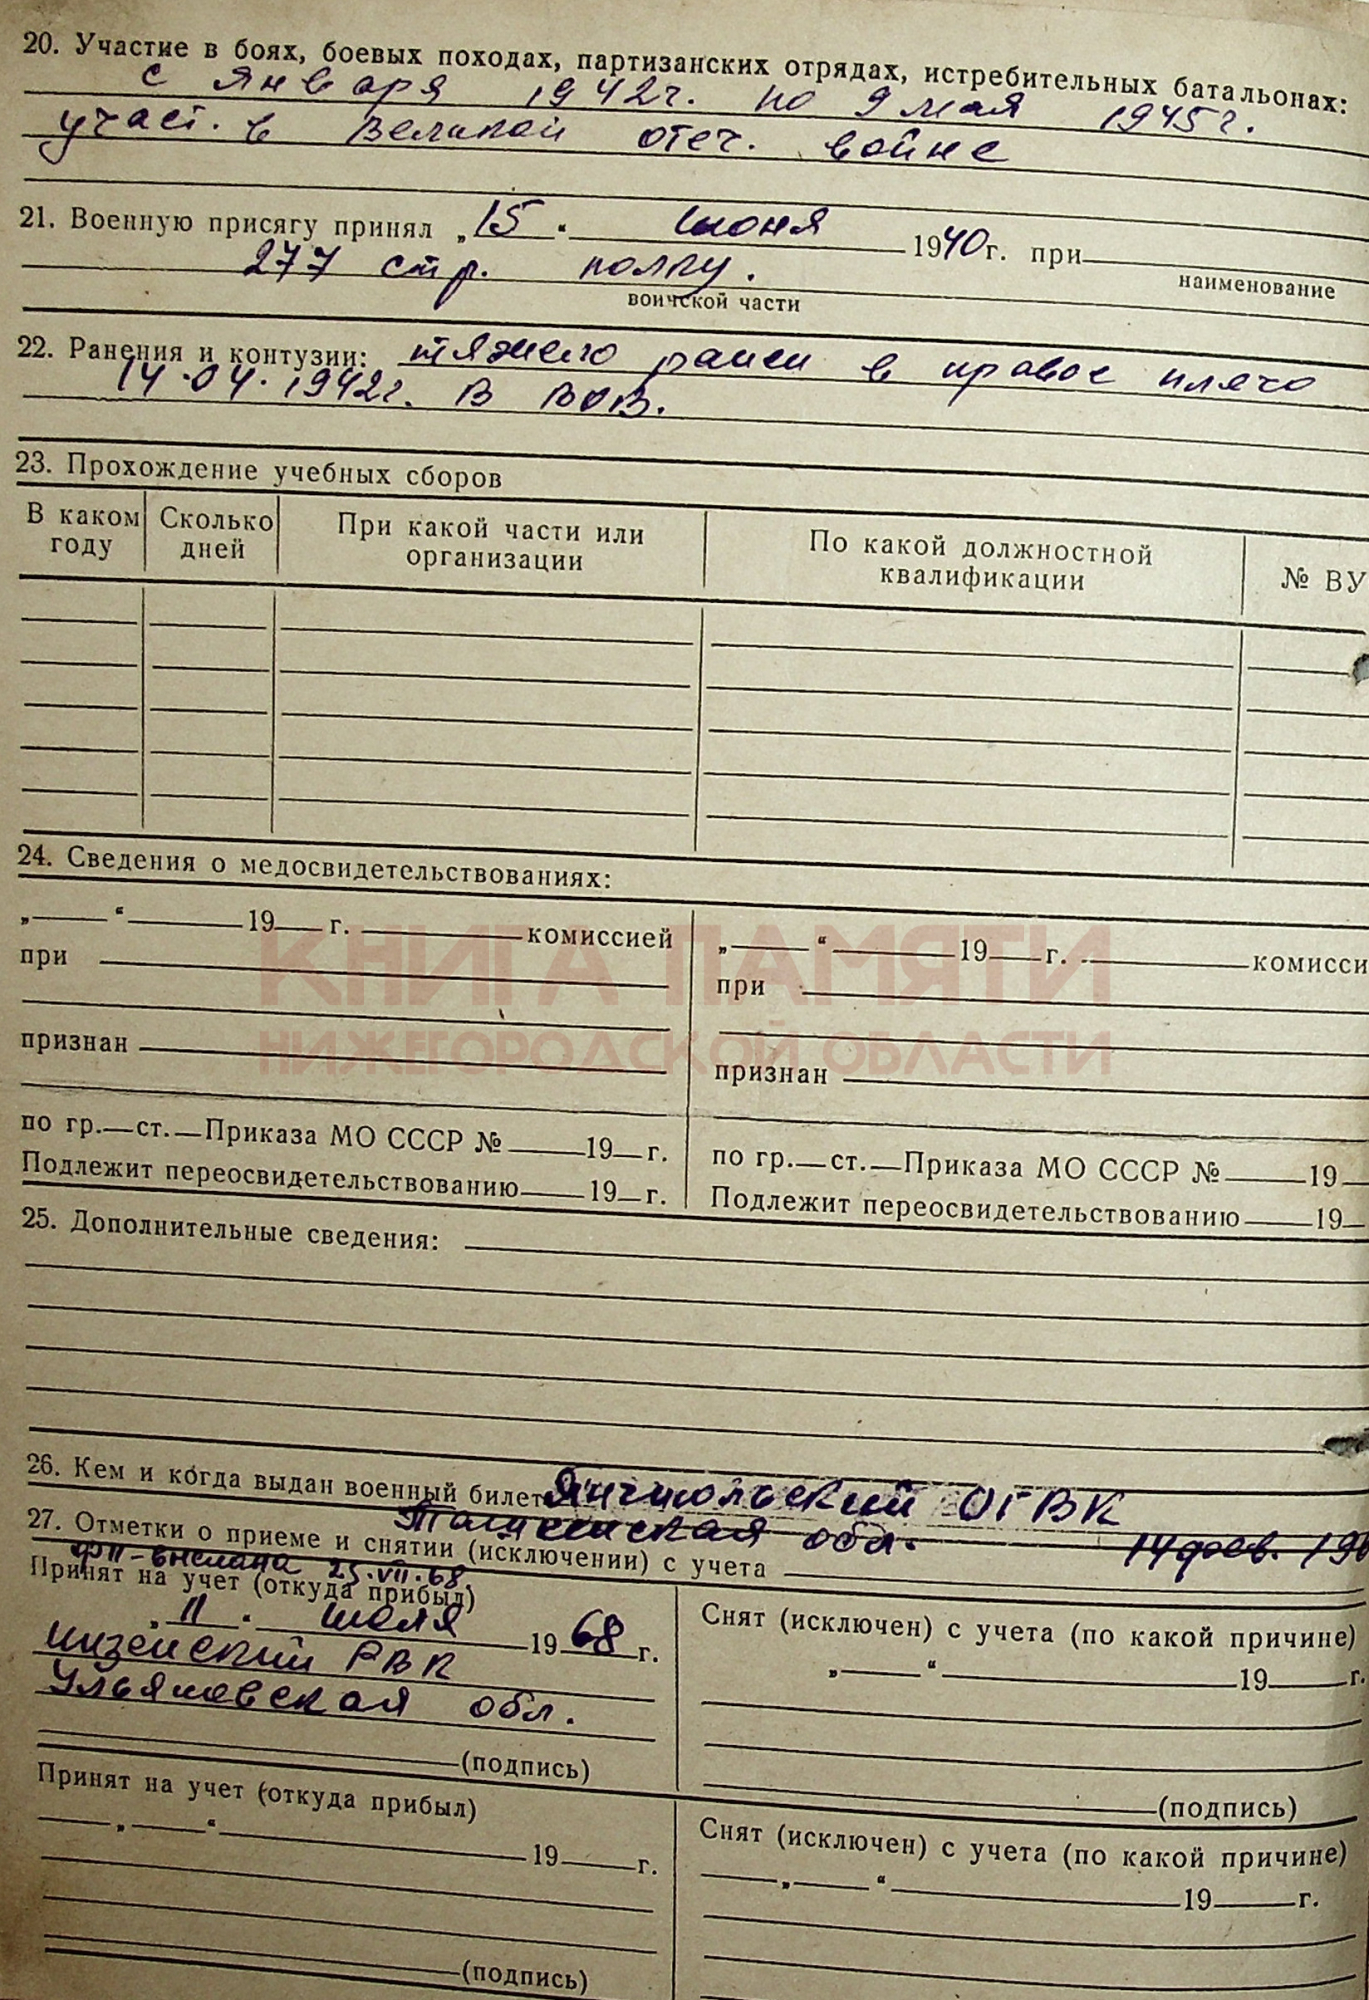 20. Участие в боях, боевых походах, партизанских отрядах, истребительных батальонах:
с января 1942г. по 9 мая 1945г.
участ. в Великой отеч. войне
21. Военную присягу принял „15“ июня 1940 г. при
наименование
277 стр. полку.
воинской части
22. Ранения и контузии: тяжело ранен в правое плячо
14.04.1942г. в ВОВ.
23. Прохождение учебных сборов
В каком году Сколько дней При какой части или организации По какой должностной квалификации № ВУ
24. Сведения о медосвидетельствованиях:
„ “ 19 г. комиссией
при
признан
по гр. ст. Приказа МО СССР № 19 г.
Подлежит переосвидетельствованию 19 г.
„ “ 19 г. комисси
при
признан
по гр. ст. Приказа МО СССР № 19
Подлежит переосвидетельствованию 19
КНИГА ПАМЯТИ
НИЖЕГОРОДСКОЙ ОБЛАСТИ
25. Дополнительные сведения:
26. Кем и когда выдан военный билет Янгиюльский ОГВК
Ташкенская обл. 14 фев. 196
27. Отметки о приеме и снятии (исключении) с учета
выслана 25.VII.68
Принят на учет (откуда прибыл)
„11“ июля 1968 г.
инзенский РВК
Ульяновская обл.
(подпись)
Снят (исключен) с учета (по какой причине)
„ “ 19 г.
(подпись)
Принят на учет (откуда прибыл)
„ “ 19 г.
(подпись)
Снят (исключен) с учета (по какой причине)
„ “ 19 г.